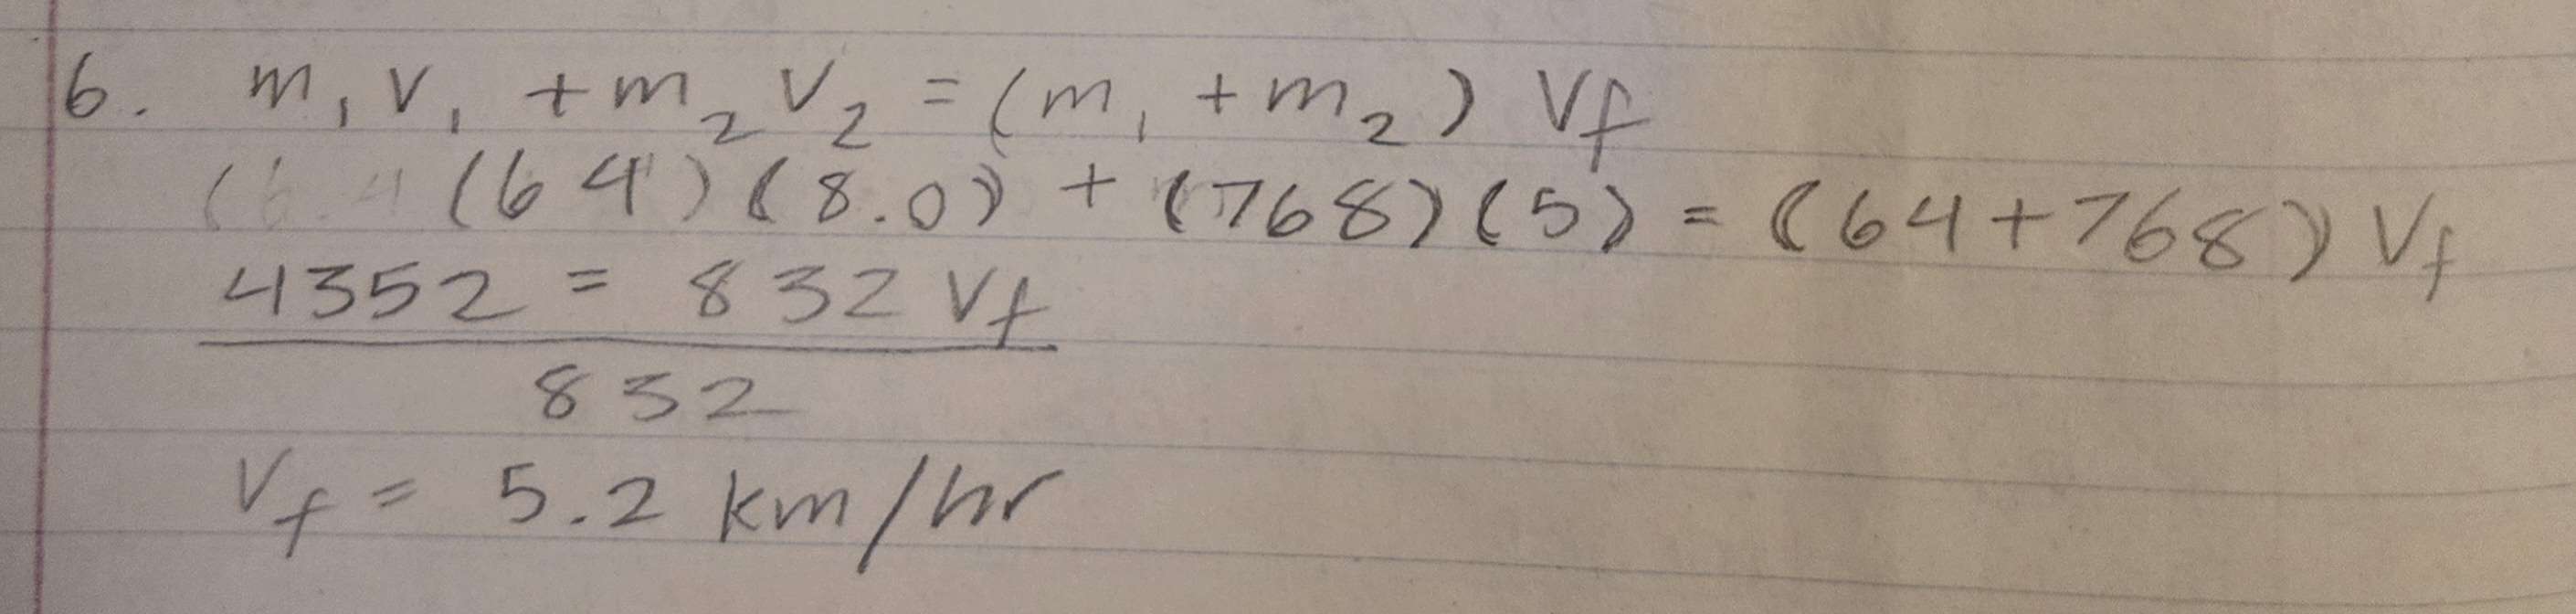 6. m₁v₁ + m₂v₂ = (m₁ + m₂) Vf
(64)(8.0) + (768)(5) = (64+768) Vf
4352 = 832 Vf
832
Vf = 5.2 km/hr